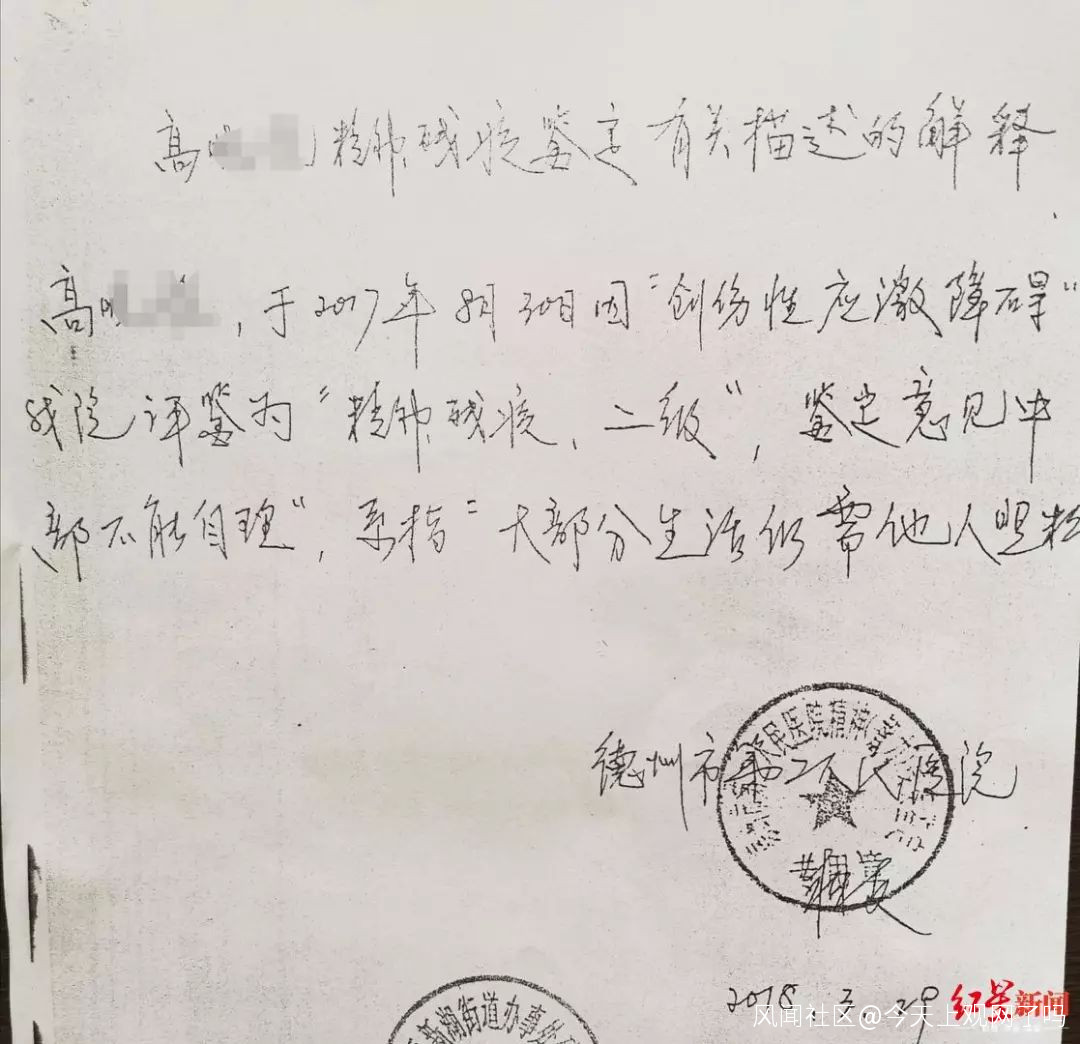 高 精神残疾鉴定有关描述的解释
高 ,于2017年8月30日因“创伤性应激障碍”
我院评鉴为“精神残疾,二级”,鉴定意见中
部不能自理”,系指“大部分生活仍需他人照料
德州市第二人民医院
人民医院精神
2018.3.29
新湖街道办事处
红星新闻
风闻社区@今天上观网了吗